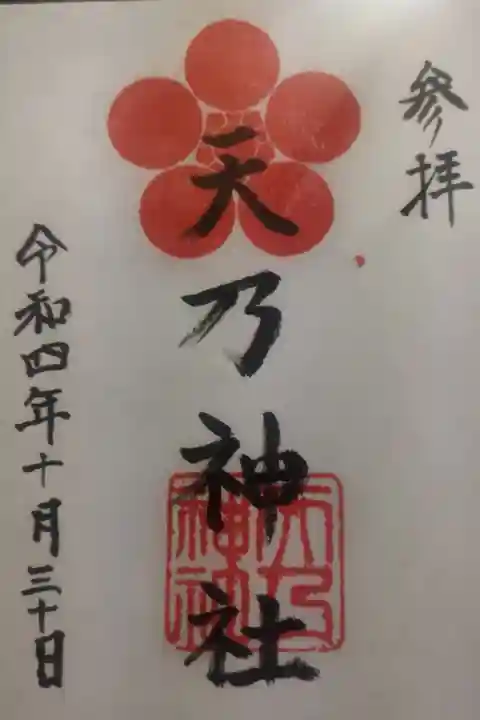 参拝
天乃神社
天乃神社
令和四年十月三十日